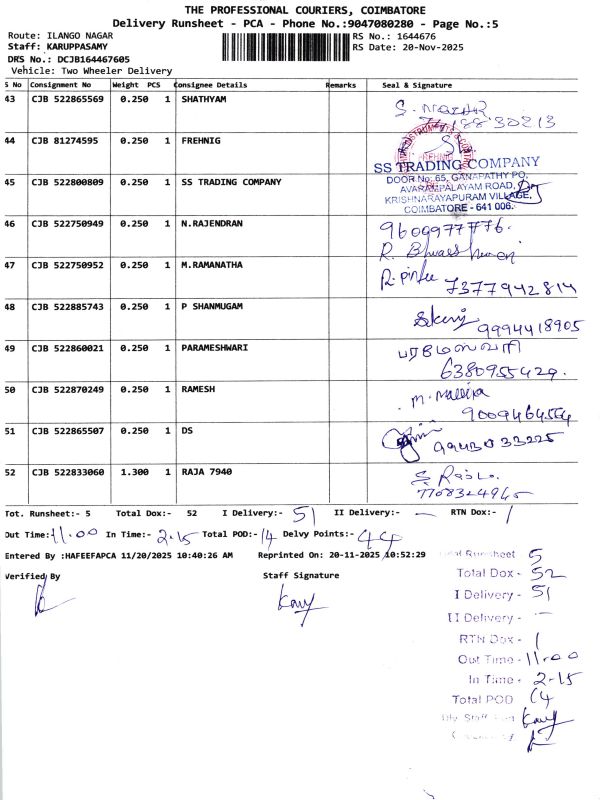 THE PROFESSIONAL COURIERS, COIMBATORE
Delivery Runsheet - PCA - Phone No.:9047080280 - Page No.:5
Route: ILANGO NAGAR RS No.: 1644676
Staff: KARUPPASAMY RS Date: 20-Nov-2025
DRS No.: DCJB164467605
Vehicle: Two Wheeler Delivery
S No Consignment No Weight PCS Consignee Details Remarks Seal & Signature
43 CJB 522865569 0.250 1 SHATHYAM
44 CJB 81274595 0.250 1 FREHNIG
SS TRADING COMPANY
45 CJB 522800809 0.250 1 SS TRADING COMPANY DOOR No: 65, GANAPATHY PO,
AVARAMPALAYAM ROAD,
KRISHNARAYAPURAM VILLAGE,
COIMBATORE - 641 006.
46 CJB 522750949 0.250 1 N.RAJENDRAN 9600977776.
47 CJB 522750952 0.250 1 M.RAMANATHA 7377942814
48 CJB 522885743 0.250 1 P SHANMUGAM 9994418905
49 CJB 522860021 0.250 1 PARAMESHWARI பரமேஸ்வரி
6380955429.
50 CJB 522870249 0.250 1 RAMESH
51 CJB 522865507 0.250 1 DS
52 CJB 522833060 1.300 1 RAJA 7940
Tot. Runsheet:- 5 Total Dox:- 52 I Delivery:- 51 II Delivery:- — RTN Dox:- 1
Out Time:- 11.00 In Time:- 2.15 Total POD:- 14 Delvy Points:- 44
Entered By :HAFEEFAPCA 11/20/2025 10:40:26 AM Reprinted On: 20-11-2025 10:52:29
Verified By Staff Signature
Total Runsheet 5
Total Dox - 52
I Delivery - 51
II Delivery - —
RTN Dox - 1
Out Time - 11.00
In Time - 2.15
Total POD 14